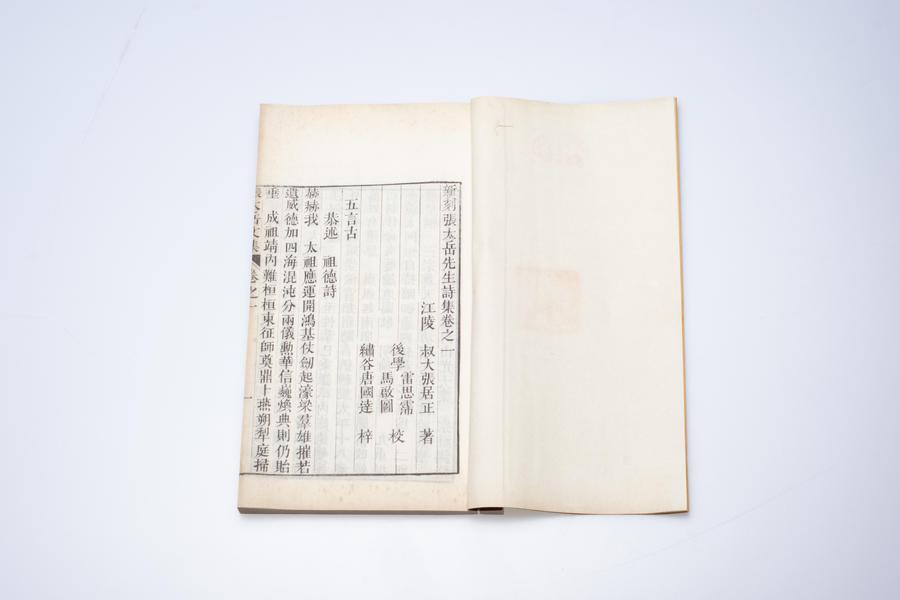 新刻張太岳先生詩集卷之一
江陵 叔大張居正 著
後學 雷思霈 馬啟圖 校
繡谷唐國達 梓
五言古
恭述 祖德詩
赫赫我 太祖應運開鴻基仗劒起濠梁羣雄摧若
遺威德加四海混沌分兩儀勳華信巍煥典則仍貽
垂 成祖靖內難桓桓東征師奠鼎十燕朔犁庭掃
張太岳文集 卷之一
一